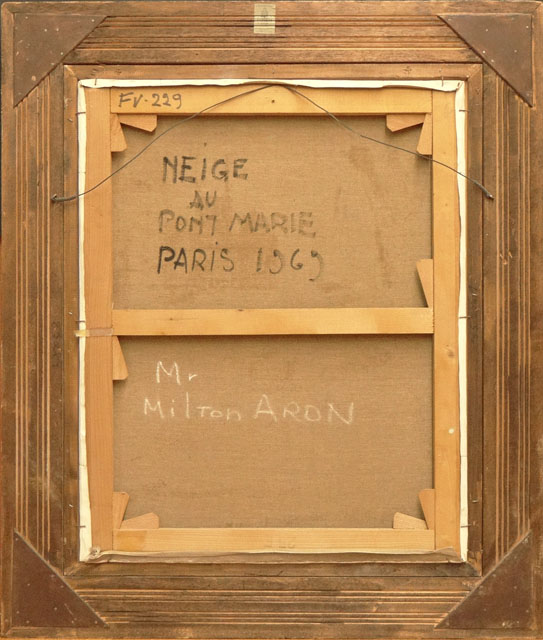 FV-229
NEIGE
AU
PONT MARIE
PARIS 1969
Mr
Milton ARON